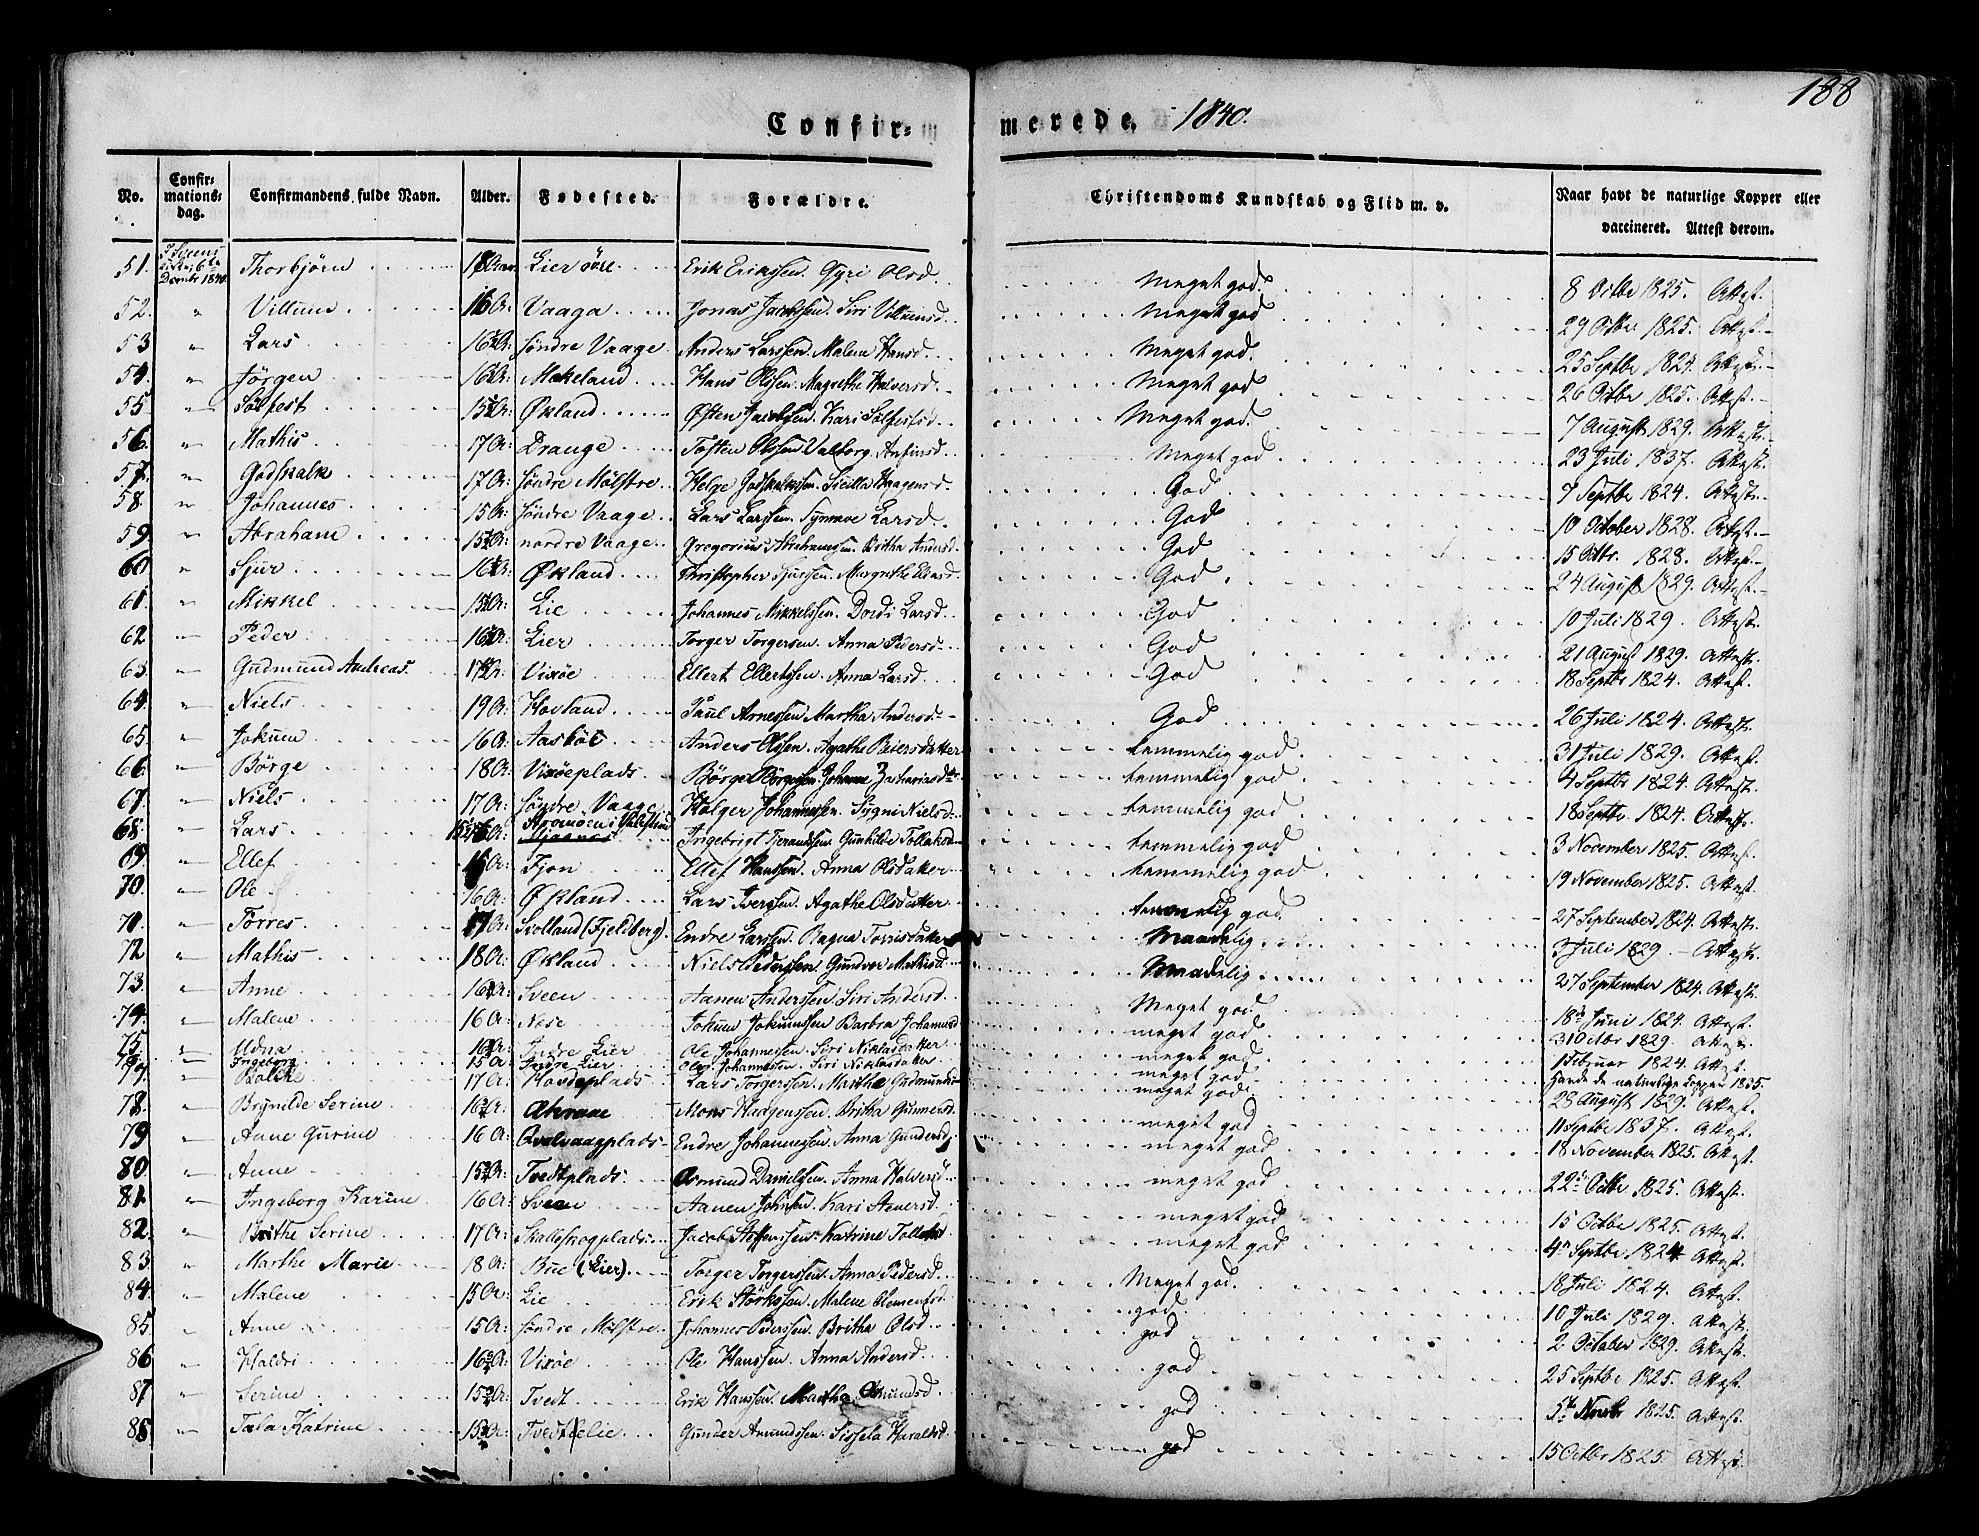 188
Confir= merede. 1840.
No. Confir-mations-dag. Confirmandens fulde Navn. Alder. Fødested. Forældre. Christendoms Kundskab og Flid m. v. Naar havt de naturlige Kopper eller vaccineret. Attest derom.
51. Thorbjørn Lier øvre Erik Erikssen. Gyri Olsd. Meget god 8 Octbr 1825. Attest.
52. " Villum 16 A: Vaaga Jonas Jacobssen. Siri Villumsd. Meget god 29 Octbr 1825. Attest.
53 " Lars søndre Vaage Anders Larssen. Malene Hansd. Meget god. 25 Septbr 1824. Attest.
54. " Jørgen Mækeland Hans Olssen. Magrethe Halversd. Meget god 26 Octbr 1825. Attest.
55 " Sølfest Økland Østen Jacobsen. Kari Sølfestsd. Meget god. 7 August 1829. Attest.
56. " Mathis 17 A: Drange Tosten Olssen. Valborg Anfinsd. Meget god 23 Juli 1837. Attest.
57. " Godskalk 17 A: søndre Mølstre Helge Godskalkssen. Sicilla Haagensd. God 7 Septbr 1824. Attest.
58. " Johannes 15 A: søndre Vaage Lars Larssen. Synnove Larsd. God 10 October 1828. Attest.
59 " Abraham nordre Vaage Gregorius Abrahamssen. Britha Andersd. God 15 Octbr. 1828. Attest.
60 " Sjur Økland Christopher Sjurssen. Margrethe God 24 August 1829. Attest.
61. " Mikkel Lie Johannes Mikkelssen. Dordi Larsd. God 10 Juli 1829. Attest.
62 " Peder Lier Torger Torgersen. Anna Pedersd. God 21 August 1829. Attest.
63 " Gudmund Andreas. Vixøe Ellert Ellertssen. Anna Larsd. God 18 Septbr 1824. Attest.
64 " Niels 19 A: Hovland Paul Arnessen Martha Andersd. God 26 Juli 1824. Attest.
65 " Jokum 16 A: Aasbøe Anders Olssen. Agathe Reiersdatter temmelig god. 31 Juli 1829. Attest.
66 " Børge 18 A: Vixøeplads Børge Børgesen Johanne Zachariasd temmelig god 4 Septbr 1824. Attest.
67. " Niels 17 A: søndre Vaage Holger Johannessen. Signi Nielsd. temmelig god 18 Septbr 1824. Attest.
68. " Lars Strømøen i Ingebrigt Tjerandssen. Gunhilde Tolleksd temmelig god 3 November 1825. Attest.
69. " Ellef Tjon Ellef Hanssen. Anna Olsdatter temmelig god 19 November 1825. Attest.
70. " Ole 16 A: Økland Lars Iverssen. Agathe Olsdatter temmelig god 27 September 1824. Attest.
71. " Torres 17 A: (Fjeldberg). Endre Larssen. Ragna Torrisdatter Maadelig 3 Juli 1829. Attest.
72 " Mathis 18 A: Økland Niels Pederssen. Gundvor Mathisd. Maadelig 27 September 1824. Attest.
73. " Anne Sveen Aanen Anderssen. Siri Andersd. Meget god 18 Juni 1824. Attest.
74. " Malene 16 A: Næse Jokum Jokumssen Barbra Johannesd meget god 31 Octbr 1829. Attest.
75. " Udna Indre Lier Ole Johannessen. Siri Niklasdatter meget god 1 Februar 1824. Attest.
76. " Ingeborg Indre Lier Ole Johannessen. Siri Niklasdatter meget god Havde de naturlige Kopper 1835.
77. " Bolette 17 A: Hovdeplads Lars Torgerssen. Marthe Gudmunds meget god 28 August 1829. Attest.
78. " Brynilde Serine Mons Haagenssen. Britha Gunnersd. meget god 11 Septbr 1837. Attest.
79 " Anne Gurine 16 A: Qvalvaagplads Endre Johannessen. Anna Gundersd. meget god 18 November 1825. Attest.
80 " Anne Tvedtplads. Osmund Danielssen. Anna Halversd. meget god 22 Octbr 1825. Attest.
81. " Ingeborg Karine 16 A: Sveen Aanen Johnsen. Kari meget god 15 Octbr 1825. Attest.
82. " Brithe Serine 17 A: Skallesnogplads Jacob Steffenssen. Katrine Tolleks meget god 4 Septbr 1824 Attest.
83 " Marthe Marie 18 A: Bue (Lier). Torger Torgerssen. Anna Pedersd. Meget god. 18 Juli 1824. Attest.
84. " Malene 15 A: Lie Erik Størkssen. Malene Clementsd. god 10 Juli 1829. Attest.
85 " Anne 15 A: søndre Mølstre Johannes Pederssen. Britha Olsd. god 2 October 1829. Attest.
86 " Haldri Vixøe Ole Hanssen. Anna Andersd. god 25 Septbr 1825. Attest.
87 " Serine Tvedt Erik Hanssen. Martha Omundsd. god 1825. Attest.
88 " Tala Katrine Tvedtelie Gunder Amundssen. Sissela Haraldsd. god 15 Octbr 1825. Attest.